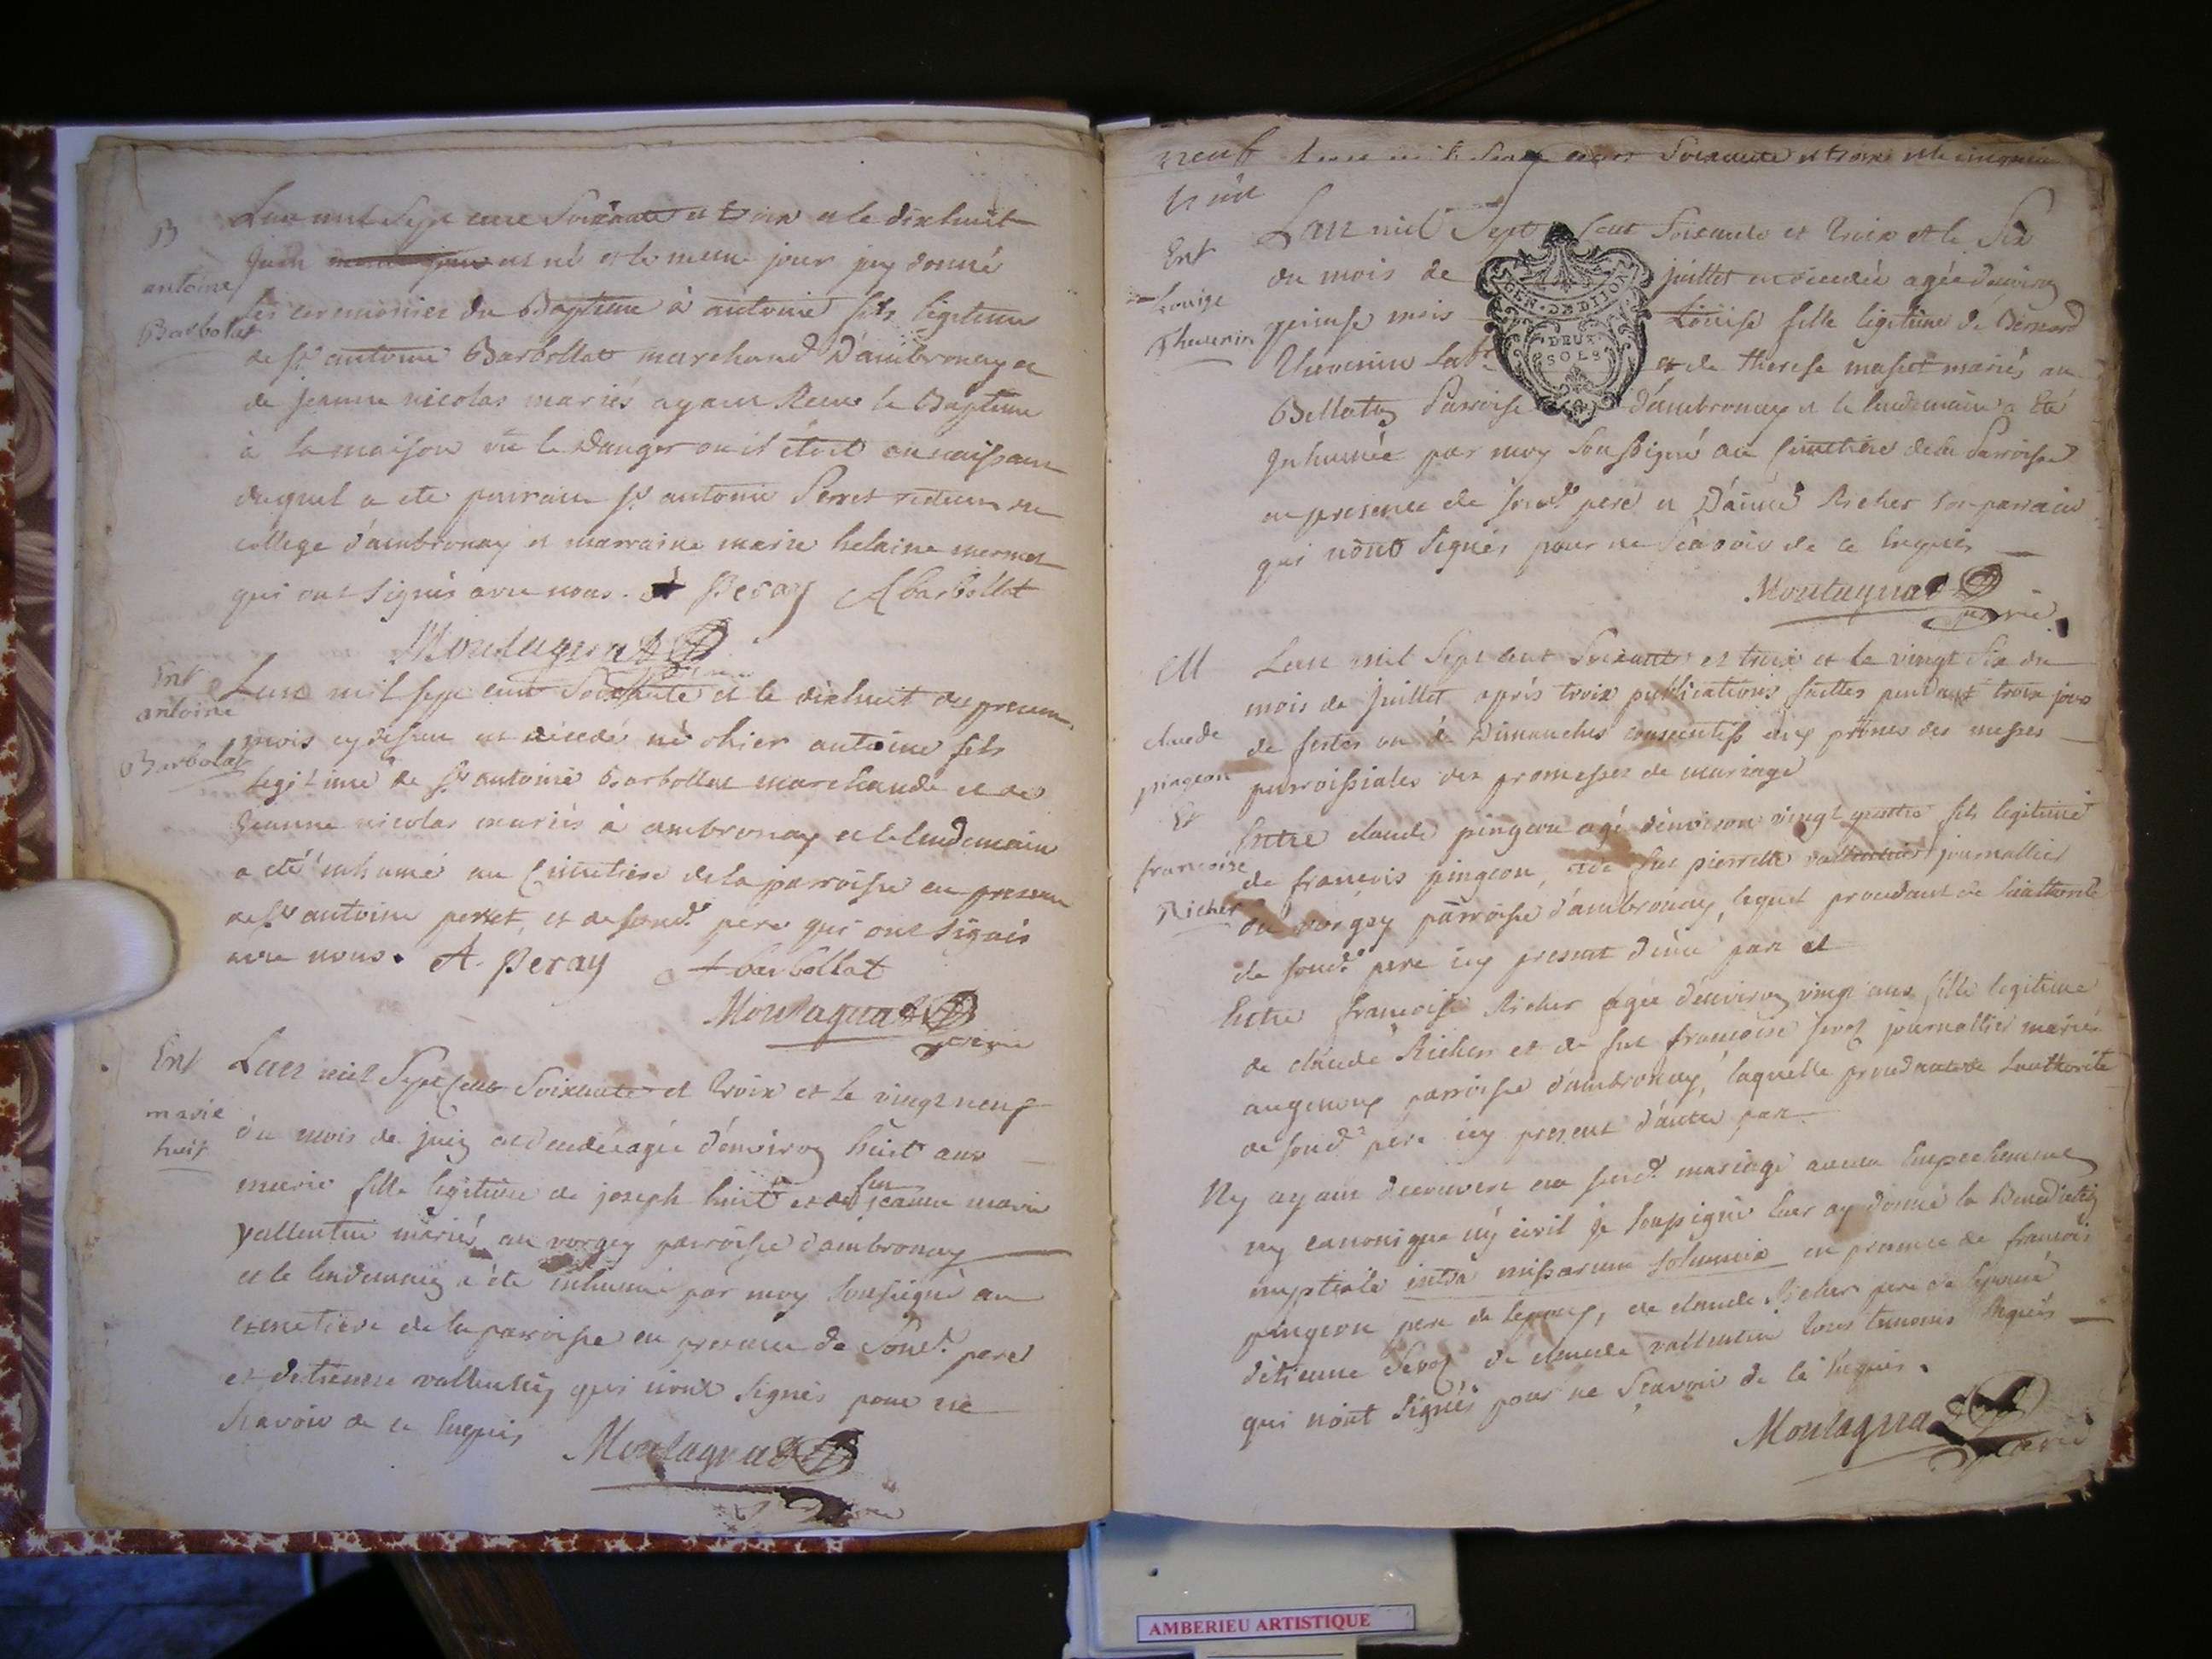 B
antoine
Barbolat
Lan mil Sept cent Soixante et trois et le dixhuit
juin est né et le meme jour jay donné
les ceremonies du Bapteme à antoine fils legitime
de Sr antoine Barbollat marchand D'ambronay et
de jeanne nicolas mariés ayant Receu le Bapteme
à la maison vû le Danger ou il étoit en naissant
duquel a ete parrain Sr antoine Perret recteur du
college d'ambronay et marraine marie helaine mermet
qui ont signés avec nous. Peray ABarbollat
Montagnat
Ent
antoine
Barbolat
Lan mil sept cent Soixante et le dixhuit du present
mois cy dessus est décedé né ohier antoine fils
legitime de Sr antoine Barbollat marchand et de
Jeanne nicolas mariés à ambronay et le lendemain
a été inhumé au Cimetiere de la parroisse en presence
de Sr antoine perret, et de sond. pere qui ont signés
avec nous. A. Peray A barbollat
Montagnat
vicaire
Ent
marie
huit
Lan mil Sept Cent Soixante et trois et le vingt neuf
du mois de juin est decedée agée d'environ huit ans
marie fille legitime de joseph huit et de feu jeanne marie
vallentin mariés au vorgey parroisse d'ambronay
et le lendemain a été inhumé par moy soussigné au
cimetiere de la paroisse en presence de Sond. pere
et detienne vallentin qui nont signés pour ne
scavoir de ce Enquis
Montagnat
neuf mil sept cent Soixante et trois et le cinquie
Ent
Louise
Thevenin
Lan mil Sept Cent Soixante et trois et le Six
du mois de juillet est decedée agée denviron
quinse mois Louise fille legitime de Bernard
Thevenin Labr et de therese masset mariés au
Bellaton Parroisse d'ambronay et le lendemain a été
Inhumée par moy Soussigné au Cimetiere de la Parroisse
en presence de sond. pere et D'aimé Richer son parrain
qui n'ont Signés pour ne Scavoir de ce Enquis
GEN. DE DIJON
DEUX
SOLS
Montagnat
vicaire
M
claude
pingeon
Et
francoise
Richer
Lan mil Sept cent Soixante et trois et le vingt Six du
mois de Juillet après trois publications faittes pendant trois jours
de festes ou de Dimanches consecutifs aux prônes des messes
parroissiales des promesses de mariage
Entre claude pingeon agé d'environ vingt quatre fils legitime
de francois pingeon, et de feu pierrette vallentin journallier
du vorgey parroisse d'ambronay, lequel procedant de l'authorité
de sond. pere icy present d'une part et
Entre francoise Richer agée d'environ vingt ans fille legitime
de claude Richer et de feu francoise Servoz journallier mariés
augenoux parroisse d'ambronay, laquelle procedante de Lauthorité
de sond. pere icy present d'autre part
Ny ayant decouvert au susd. mariage aucun Empechement
ny canonique ny civil je soussigné leur ay donné la Benediction
nuptiale intra missarum solemnia en presence de francois
pingeon pere de lepoux, de claude Richer pere de lepouse
d'étienne Servoz de claude vallentin tous temoins Requis
qui n'ont Signés pour ne Sçavoir de ce Enquis.
Montagnat
vicaire
AMBERIEU ARTISTIQUE